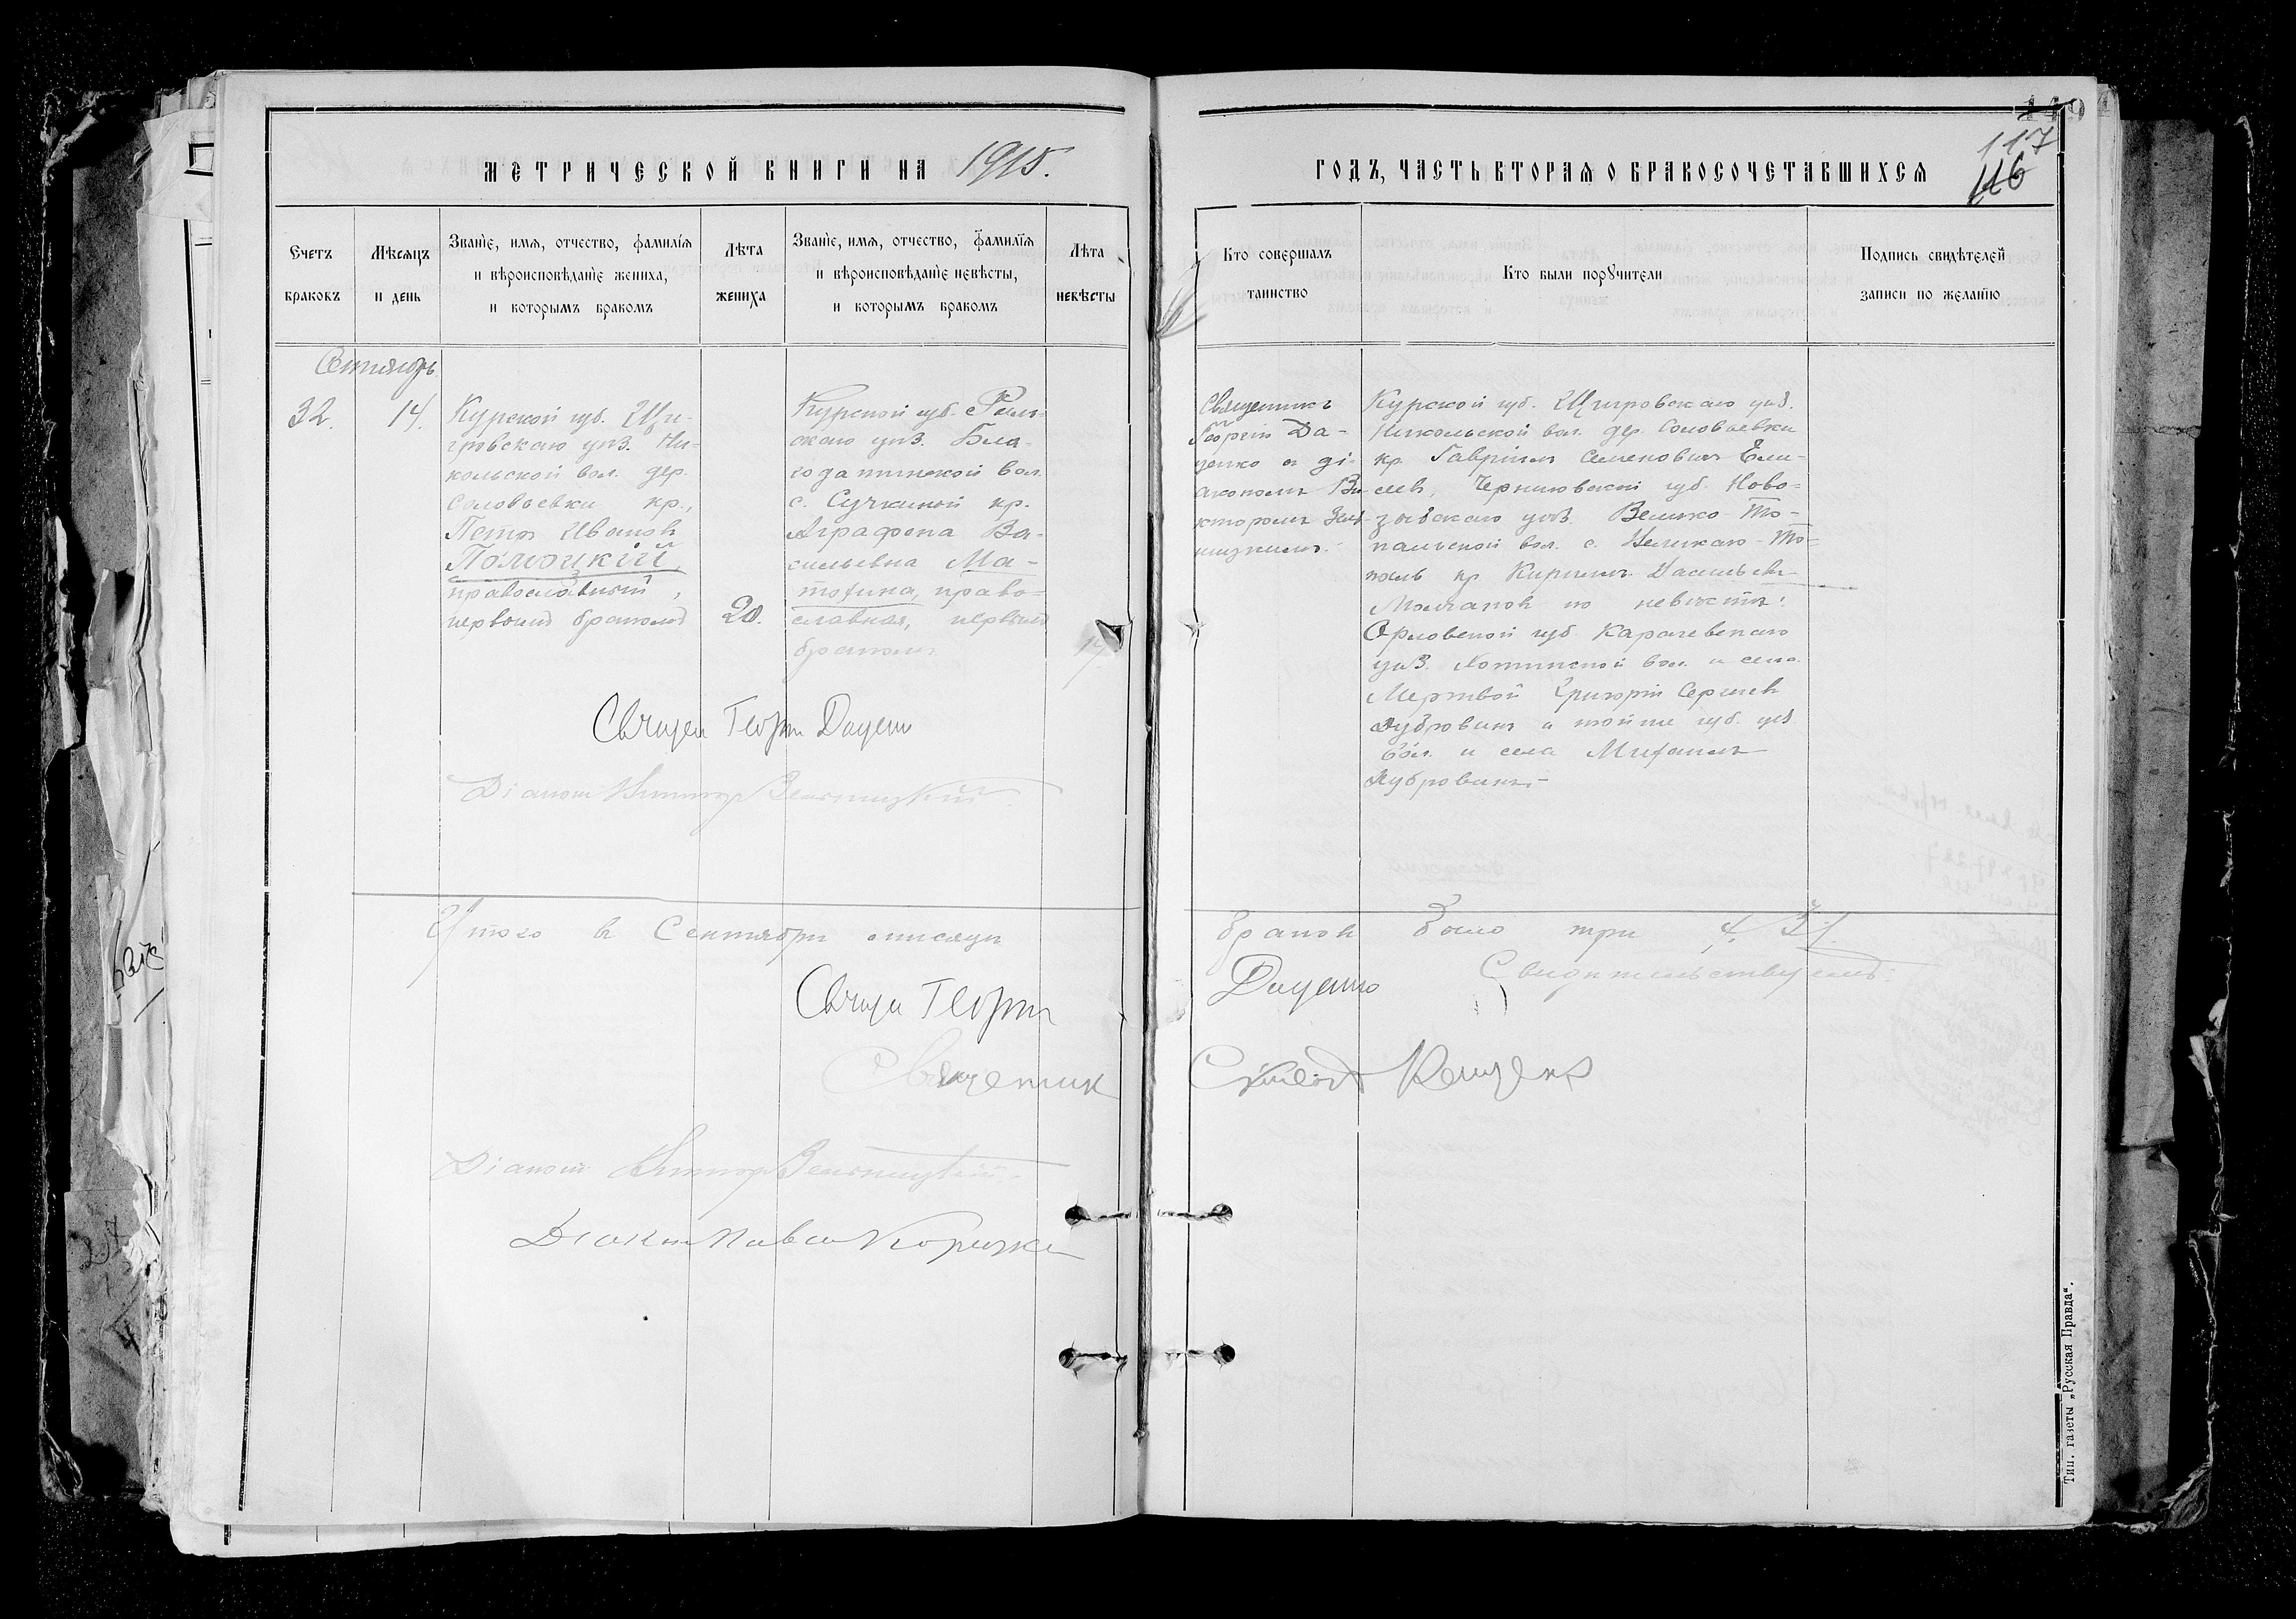 МЕТРИЧЕСКОЙ КНИГИ НА 1915.
ГОДЪ, ЧАСТЬ ВТОРАЯ О БРАКОСОЧЕТАВШИХСЯ
117
116
Счетъ браковъ
Мѣсяцъ и день
Званіе, имя, отчество, фамилія
и вѣроисповѣданіе жениха,
и которымъ бракомъ
Лѣта жениха
Званіе, имя, отчество, фамилія
и вѣроисповѣданіе невѣсты,
и которымъ бракомъ
Лѣта невѣсты
Кто совершалъ
таинство
Кто были поручители
Подпись свидѣтелей
записи по желанію
Сентябрь
32.
14.
Курской губ. Щи-
гровскаго уѣз. Ни-
кольской вол. дер.
Соловьевки кр.,
Петръ Ивановъ
православный,
первымъ бракомъ
20.
Курской губ. Рыль-
скаго уѣз. Бла-
годатинской вол.
с. Сучкиной кр.
Аграфена Ва-
сильевна Ма-
тохина, право-
славная, первымъ
бракомъ.
17
Священникъ
Георгій Да-
ценко съ ді-
акономъ Ви
кторомъ
Курской губ. Щигровскаго уѣз.
Никольской вол. дер. Соловьевки
кр. Гавріилъ Семеновичъ Ели-
сеев, Черниговской губ. Ново-
зыбскаго уѣз. Велико-То-
пальской вол. с. Великаго-То-
поль кр. Кириллъ Васильев
Молчановъ по невѣсте:
Орловской губ. Карачевскаго
уѣз. Хотинской вол. и села
Мертвой Григорій Сергѣев
Дубровинъ и тойже губ. уѣз.
вол. и села Михаилъ
Дубровинъ.-
Священ Георгій Даценко
Діаконъ Викторъ
Итого въ Сентябрѣ мѣсяцѣ
браковъ было три
Свидѣтельствуемъ:
Священ Георгій
Даценко
Священник
Діаконъ Викторъ
Тип. газеты „Русская Правда“.